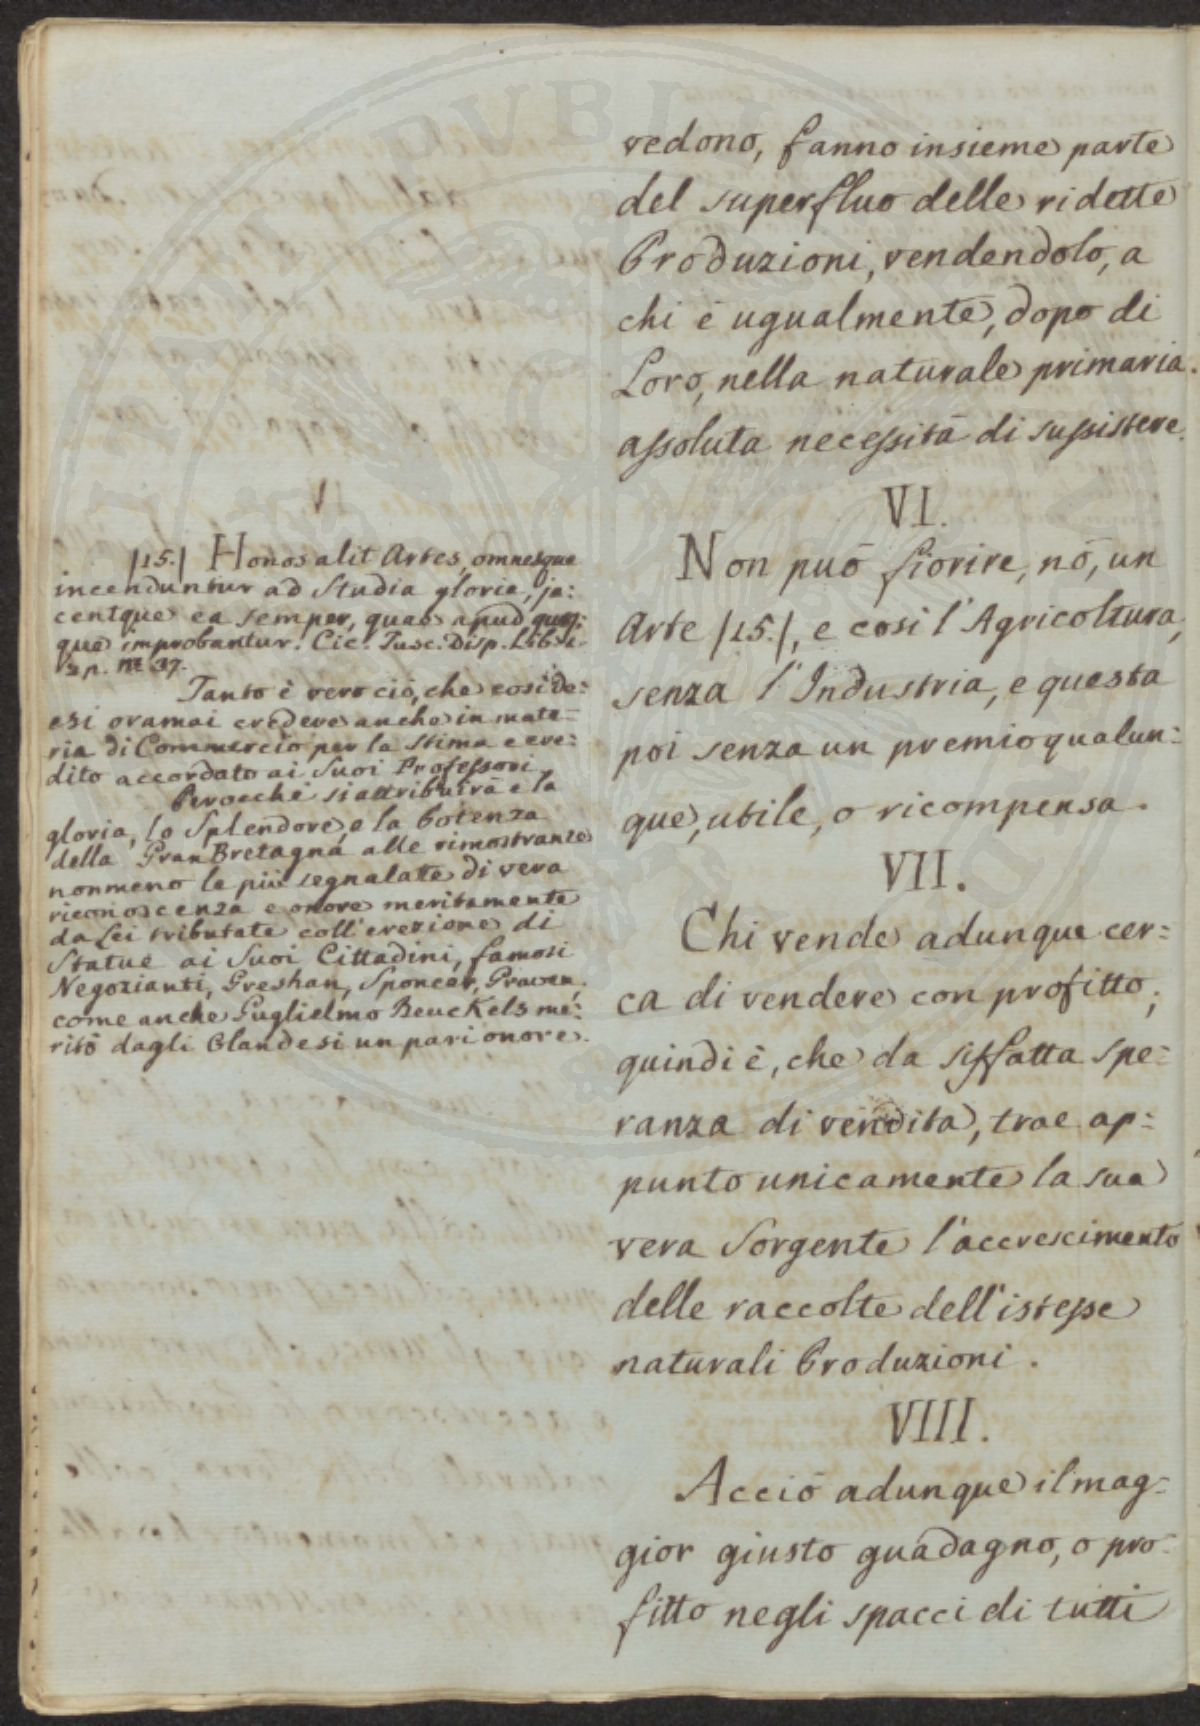 vedono, fanno insieme parte
del superfluo delle ridotte
Produzioni, vendendolo, a
chi è ugualmente, dopo di
Loro, nella naturale primaria
assoluta necessità di sussistere.
VI.
Non può fiorire, nò, un
Arte |15.|, e così l'Agricoltura,
senza l'Industria, e questa
poi senza un premio qualun:
que, utile, o ricompensa.
VII.
Chi vende adunque cer:
ca di vendere con profitto;
quindi è, che da siffatta spe:
ranza di vendita, trae ap:
punto unicamente la sua
vera Sorgente l'accrescimento
delle raccolte dell'istesse
naturali Produzioni.
VIII.
Acciò adunque il mag:
gior giusto guadagno, o pro:
fitto negli spacci di tutti
|15.| Honos alit Artes, omnesque
incenduntur ad Studia gloria, ja:
centque ea semper, quae apud quos:
que improbantur. Cic. Tusc. Disp. Lib.
p. 37.
Tanto è vero ciò, che così de:
esi oramai credere anche in mate:
ria di Commercio per la stima e cre:
dito accordato ai Suoi Professori.
Perocchè si attribuirà e la
gloria, lo Splendore, e la Potenza
della Gran Bretagna alle rimostranze
nonmeno le più segnalate di vera
riconoscenza e onore meritamente
da Lei tributate coll'erezione di
Statue ai Suoi Cittadini, famosi
Negozianti, Greshan, Sponcer, Craven.
come anche Guglielmo Beuckels me:
ritò dagli Olandesi un pari onore.